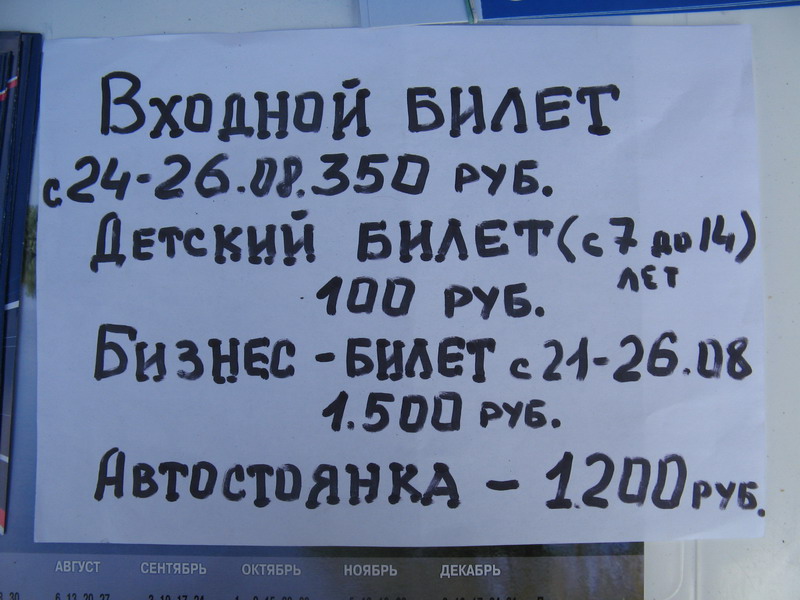 Входной билет
с 24-26.08.350 руб.
Детский билет (с 7 до 14)
лет
100 руб.
Бизнес-билет с 21-26.08
1.500 руб.
Автостоянка - 1.200 руб.
АВГУСТ СЕНТЯБРЬ ОКТЯБРЬ НОЯБРЬ ДЕКАБРЬ